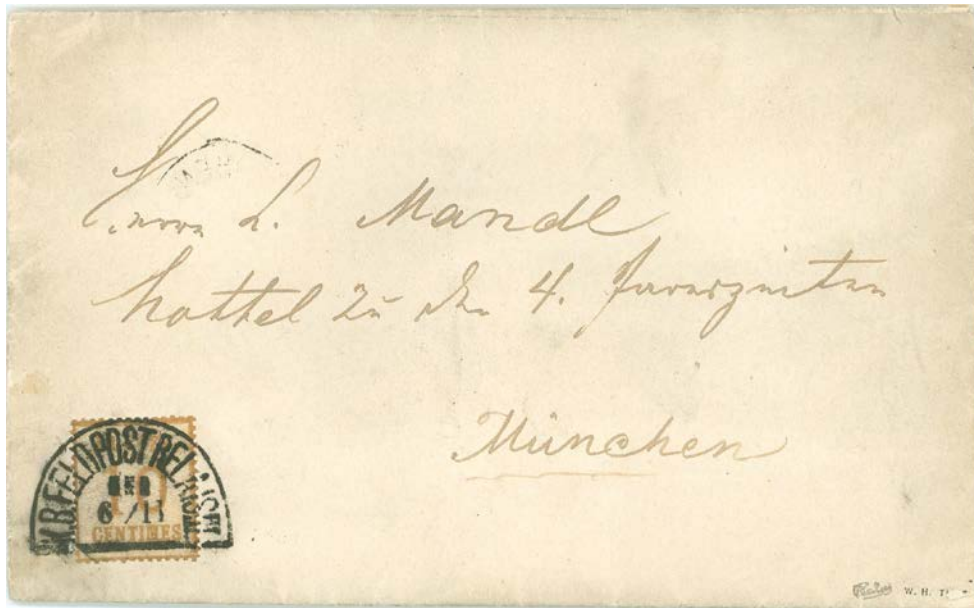 Herrn L. Mandl
Hottel zu den 4. Jareszeiten
München
K.B. FELDPOST RELAISN
6 / 11
10
CENTIMES
W. H.